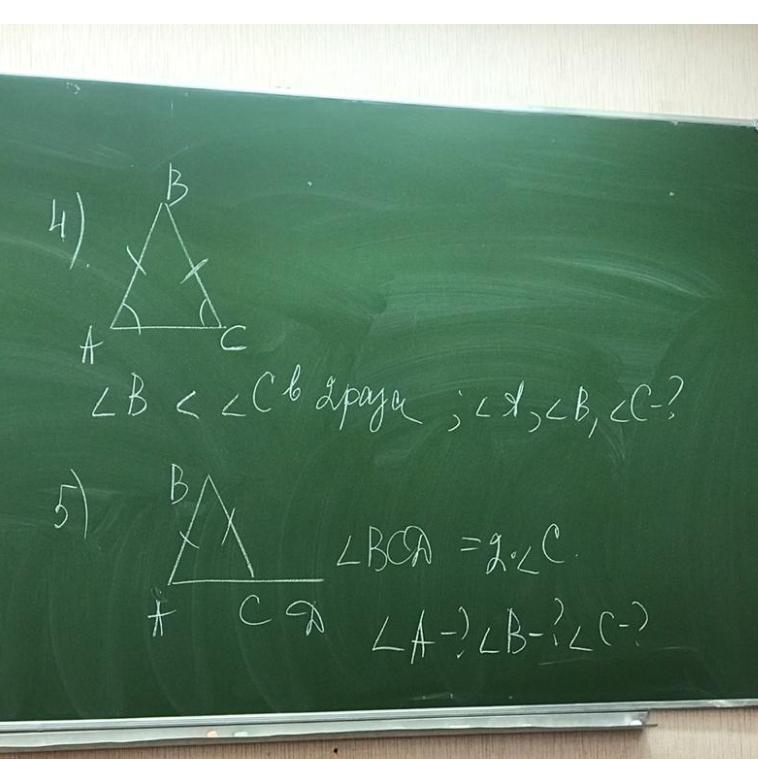 4).
B
A C
∠B < ∠C в 2 раза ; ∠A, ∠B, ∠C-?
5)
B
∠BCD = 2·∠C.
A C D
∠A-? ∠B-? ∠C-?